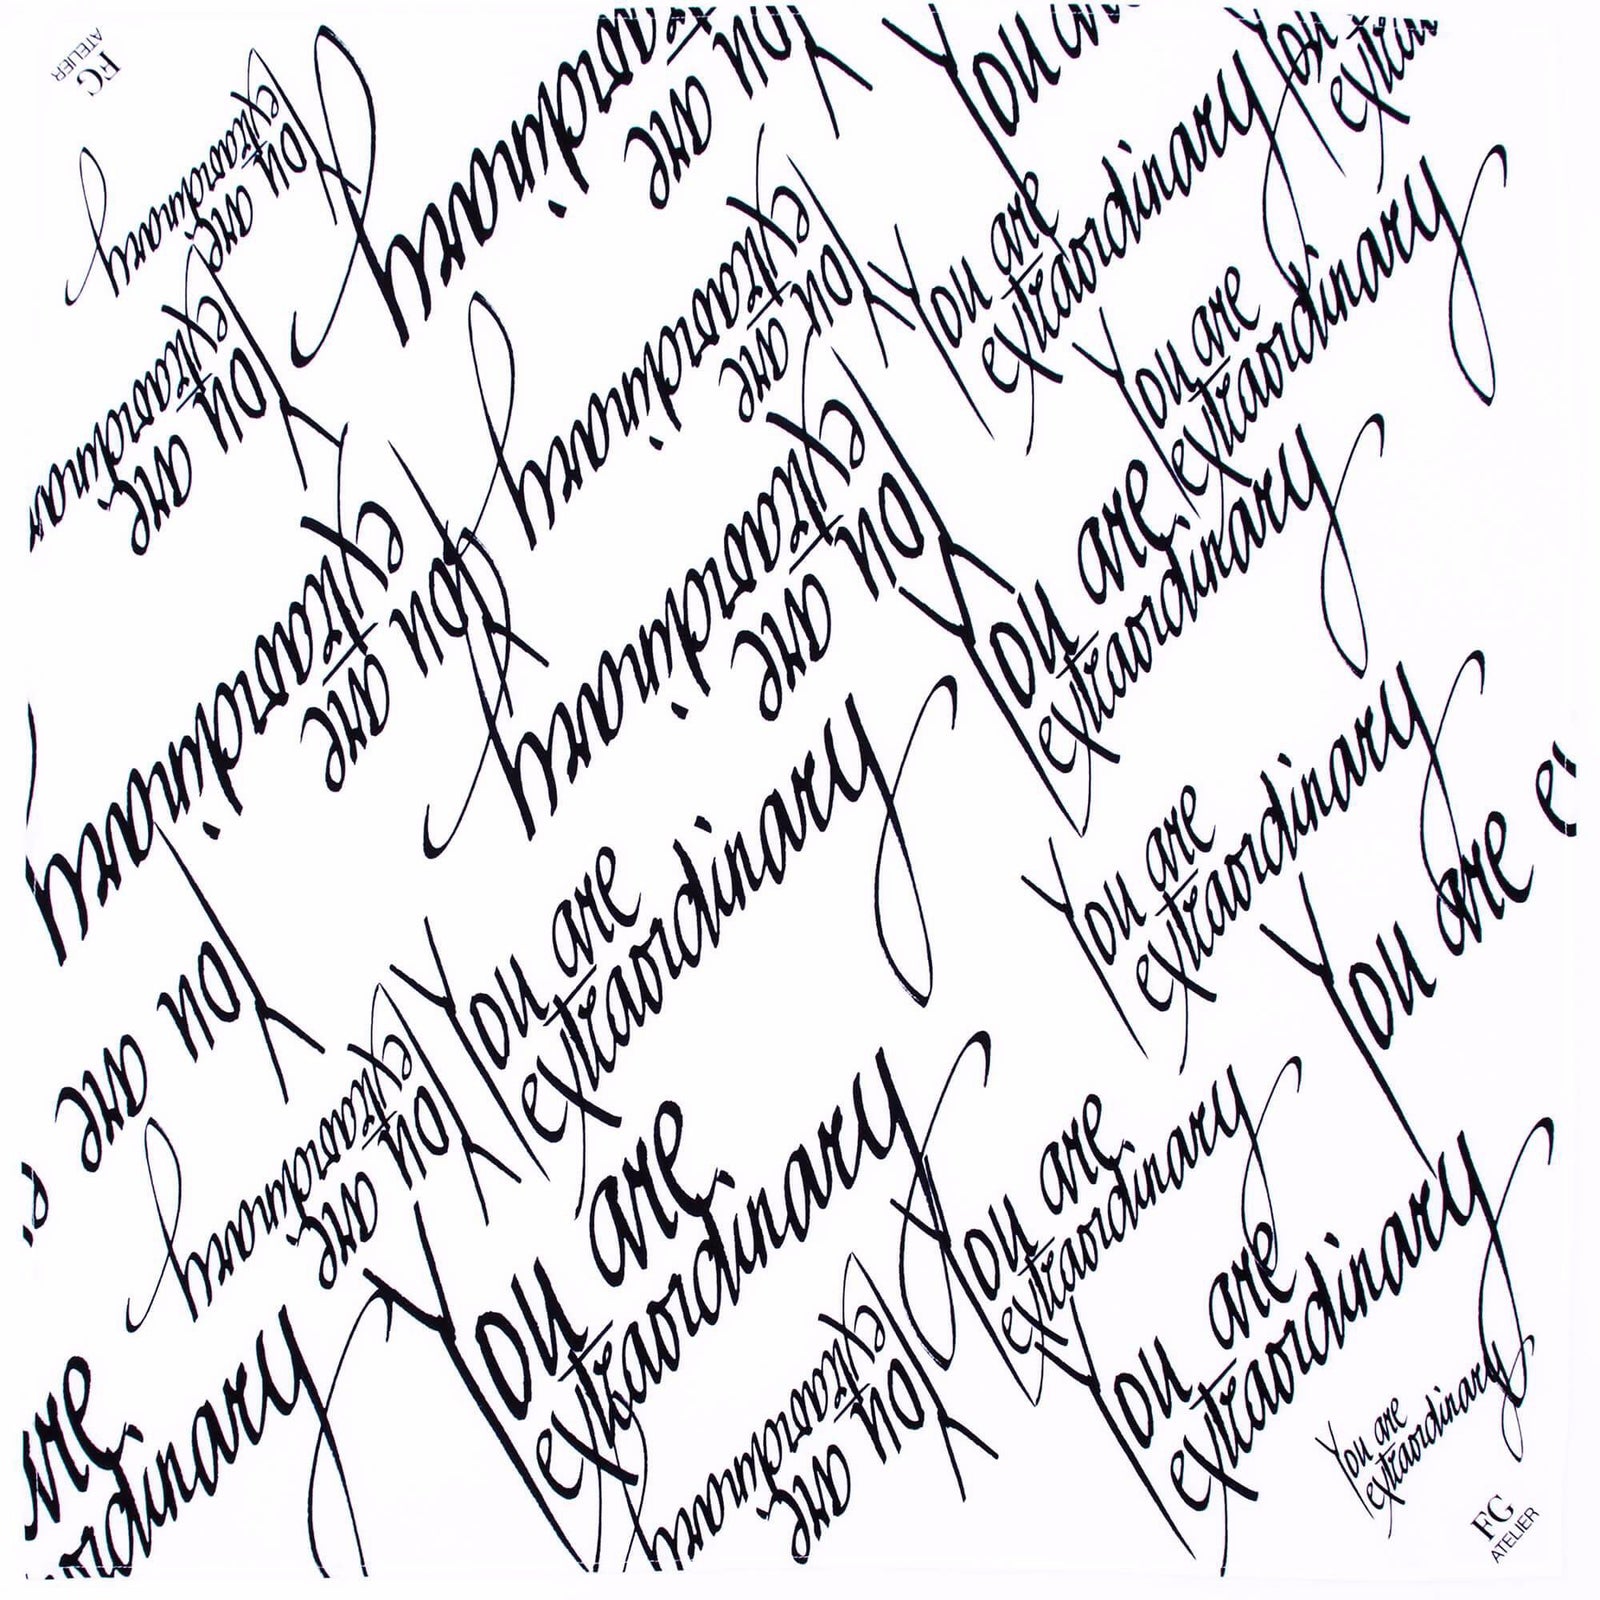 FG
ATELIER
You are
extraordinary
You are
raordinary
You ar
You are
extraordinary
You
extra
You are
extraordinary
You are
extraordinar
You are
extraordinary
You are
extraordinary
You are
extraordinary
You are
extraordinary
You are
extraordinary
You are
extraordinary
You are e
You are e
You are
extraordinary
You are
extraordinary
re
ordinary
You are
extraordinary
You are
extraordinary
You are
extraordinary
You are
extraordinary
FG
ATELIER